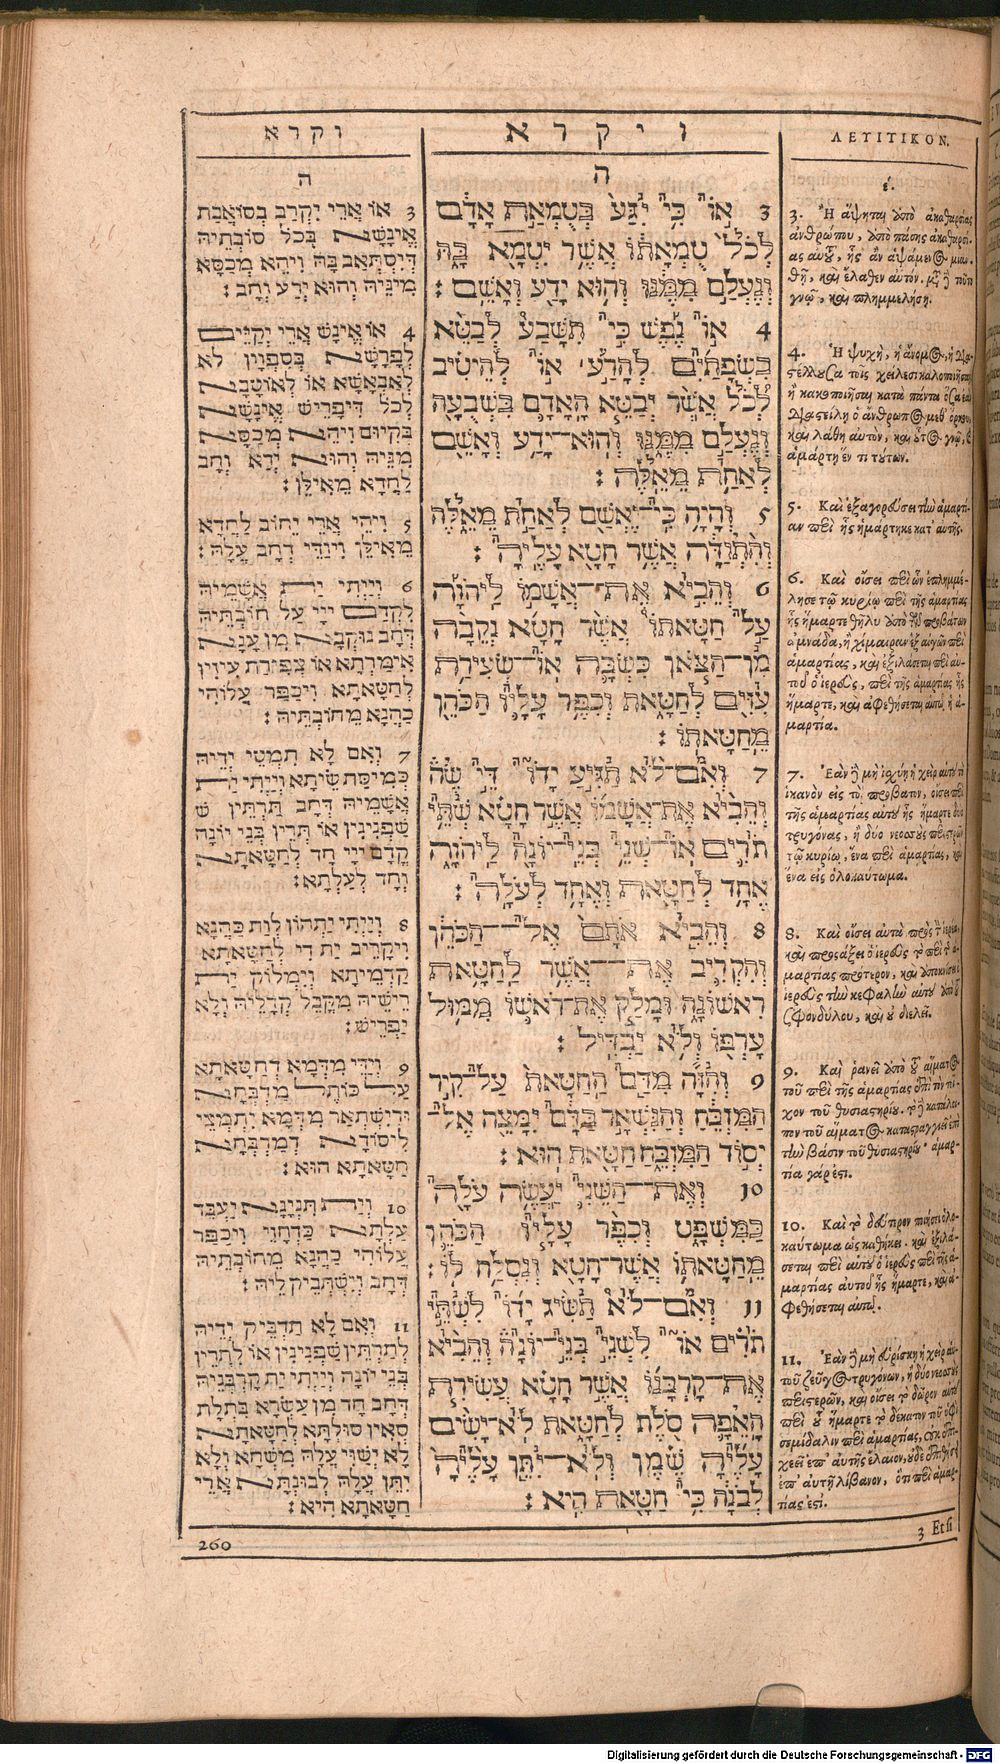 ויקרא
ה
3 או ארי יקרב בסואבת
אינשא בכל סובתיה
דיסתאב בה ויהא מכסא
מיניה והוא ידע וחב:
4 או אינש ארי יקיים
לפרשא בספוין לא
לאבאשא או לאוטבא
לכל דיפריש אינשא
בקיום ויהי מכסא
מניה והוא ידא וחב
לחדא מאילין:
5 ויהי ארי יחוב לחדא
מאילין ויודי דחב עלה:
6 וייתי ית אשמיה
לקדם ייי על חובתיה
דחב נוקבא מן ענא
אימרתא או צפירת עיזין
לחטאתא ויכפר עלוהי
כהנא מחובתיה:
7 ואם לא תמטי ידיה
כמיסת שיתא וייתי ית
אשמיה דחב תרתין ש
שפנינין או תרין בני יונה
קדם ייי חד לחטאתא
וחד לעלתא:
8 וייתי יתהון לות כהנא
ויקריב ית די לחטאתא
קדמיתא וימלוק ית
רישיה מקבל קדליה ולא
יפריש:
9 וידי מדמא דחטאתא
על כותל מדבחא
ודישתאר מדמא יתמצי
ליסודא דמדבחא
חטאתא הוא:
10 וית תנינא יעבד
עלתא כדחזי ויכפר
עלוהי כהנא מחובתיה
דחב וישתביק ליה:
11 ואם לא תדביק ידיה
לתרתין שפנינין או לתרין
בני יונה וייתי ית קרבניה
דחב חד מן עשרא בתלת
סאין סולתא לחטאתא
לא ישוי עלה משחא ולא
יתן עלה לבונתא ארי
חטאתא היא:
ויקרא
ה
3 או כי יגע בטמאת אדם
לכל טמאתו אשר יטמא בה
ונעלם ממנו והוא ידע ואשם:
4 או נפש כי תשבע לבטא
בשפתים להרע או להיטיב
לכל אשר יבטא האדם בשבעה
ונעלם ממנו והוא־ידע ואשם
לאחת מאלה:
5 והיה כי־יאשם לאחת מאלה
והתודה אשר חטא עליה:
6 והביא את־אשמו ליהוה
על חטאתו אשר חטא נקבה
מן־הצאן כשבה או־שעירת
עזים לחטאת וכפר עליו הכהן
מחטאתו:
7 ואם־לא תגיע ידו די שה
והביא את־אשמו אשר חטא שתי
תרים או־שני בני־יונה ליהוה
אחד לחטאת ואחד לעלה:
8 והביא אתם אל־הכהן
והקריב את־אשר לחטאת
ראשונה ומלק את־ראשו ממול
ערפו ולא יבדיל:
9 והזה מדם החטאת על־קיר
המזבח והנשאר בדם ימצה אל־
יסוד המזבח חטאת הוא:
10 ואת־השני יעשה עלה
כמשפט וכפר עליו הכהן
מחטאתו אשר־חטא ונסלח לו:
11 ואם־לא תשיג ידו לשתי
תרים או לשני בני־יונה והביא
את־קרבנו אשר חטא עשירת
האפה סלת לחטאת לא־ישים
עליה שמן ולא־יתן עליה
לבנה כי חטאת היא:
ΛΕΥΙΤΙΚΟΝ.
ε.
3. Ἢ ἅψηται ἀπὸ ἀκαθαρσίας
ἀνθρώπου, ἀπὸ πάσης ἀκαθαρσί-
ας αὐτοῦ, ἧς ἂν ἁψάμενος μιαν-
θῇ, καὶ ἔλαθεν αὐτόν. μετὰ δὲ τοῦτο
γνῷ, καὶ πλημμελήσῃ.
4. Ἡ ψυχὴ, ἡ ἄνομος, ἡ δια-
στέλλουσα τοῖς χείλεσι κακοποιῆσαι
ἢ καλοποιῆσαι κατὰ πάντα ὅσα ἐὰν
διαστείλῃ ὁ ἄνθρωπος μεθ' ὅρκου,
καὶ λάθῃ αὐτὸν, καὶ οὗτος γνῷ, καὶ
ἁμάρτῃ ἕν τι τούτων.
5. Καὶ ἐξαγορεύσει τὴν ἁμαρτί-
αν περὶ ἧς ἡμάρτηκε κατ' αὐτῆς.
6. Καὶ οἴσει περὶ ὧν ἐπλημμέ-
λησε τῷ κυρίῳ περὶ τῆς ἁμαρτίας
ἧς ἥμαρτε θῆλυ ἀπὸ τῶν προβάτων
ἀμνάδα, ἢ χίμαιραν ἐξ αἰγῶν περὶ
ἁμαρτίας, καὶ ἐξιλάσεται περὶ αὐ-
τοῦ ὁ ἱερεὺς, περὶ τῆς ἁμαρτίας ἧς
ἥμαρτε, καὶ ἀφεθήσεται αὐτῷ ἡ ἁ-
μαρτία.
7. Ἐὰν δὲ μὴ ἰσχύῃ ἡ χεὶρ αὐτοῦ τὸ
ἱκανὸν εἰς τὸ πρόβατον, οἴσει περὶ
τῆς ἁμαρτίας αὐτοῦ ἧς ἥμαρτε δύο
τρυγόνας, ἢ δύο νεοσσοὺς περιστερῶν
τῷ κυρίῳ, ἕνα περὶ ἁμαρτίας, καὶ
ἕνα εἰς ὁλοκαύτωμα.
8. Καὶ οἴσει αὐτὰ πρὸς τὸν ἱερέα,
καὶ προσάξει ὁ ἱερεὺς τὸ περὶ τῆς ἁ-
μαρτίας πρότερον, καὶ ἀποκνίσει ὁ
ἱερεὺς τὴν κεφαλὴν αὐτοῦ ἀπὸ τοῦ
σφονδύλου, καὶ οὐ διελεῖ.
9. Καὶ ῥανεῖ ἀπὸ τοῦ αἵματος
τοῦ περὶ τῆς ἁμαρτίας ἐπὶ τὸν τοῖ-
χον τοῦ θυσιαστηρίου. τὸ δὲ κατάλοι-
πον τοῦ αἵματος καταστραγγιεῖ ἐπὶ
τὴν βάσιν τοῦ θυσιαστηρίου· ἁμαρ-
τία γάρ ἐστι.
10. Καὶ τὸ δεύτερον ποιήσει ὁλο-
καύτωμα ὡς καθήκει. καὶ ἐξιλά-
σεται περὶ αὐτοῦ ὁ ἱερεὺς περὶ τῆς ἁ-
μαρτίας αὐτοῦ ἧς ἥμαρτε, καὶ ἀ-
φεθήσεται αὐτῷ.
11. Ἐὰν δὲ μὴ εὑρίσκῃ ἡ χεὶρ αὐ-
τοῦ ζεῦγος τρυγόνων, ἢ δύο νεοσσοὺς
περιστερῶν, καὶ οἴσει τὸ δῶρον αὐτοῦ
περὶ οὗ ἥμαρτε τὸ δέκατον τοῦ οἰφὶ
σεμίδαλιν περὶ ἁμαρτίας, οὐκ ἐπι-
χεεῖ ἐπ' αὐτῆς ἔλαιον, οὐδὲ ἐπιθήσει
ἐπ' αὐτῇ λίβανον, ὅτι περὶ ἁμαρ-
τίας ἐστί.
260
3 Et si
Digitalisierung gefördert durch die Deutsche Forschungsgemeinschaft - DFG